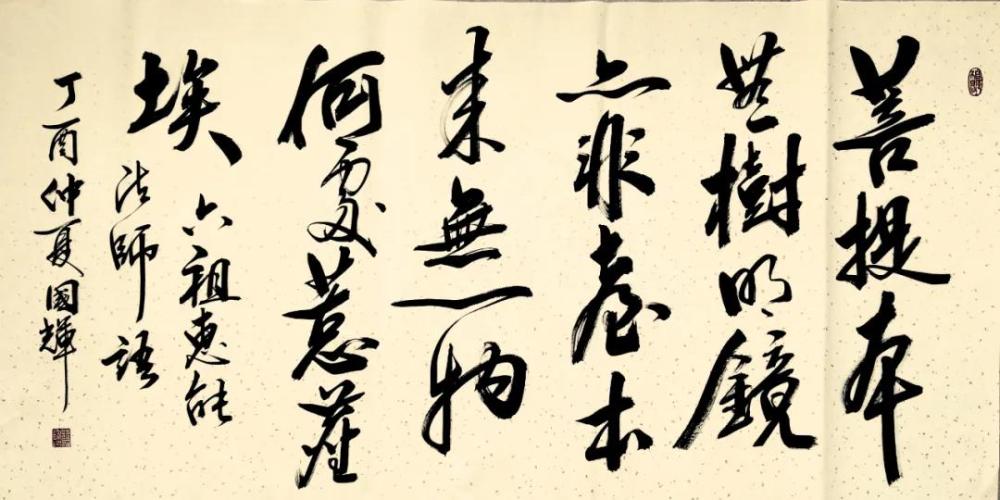 菩提本
無樹明鏡
亦非臺本
来無一物
何處惹塵
埃 六祖惠能
法師語
丁酉仲夏國輝